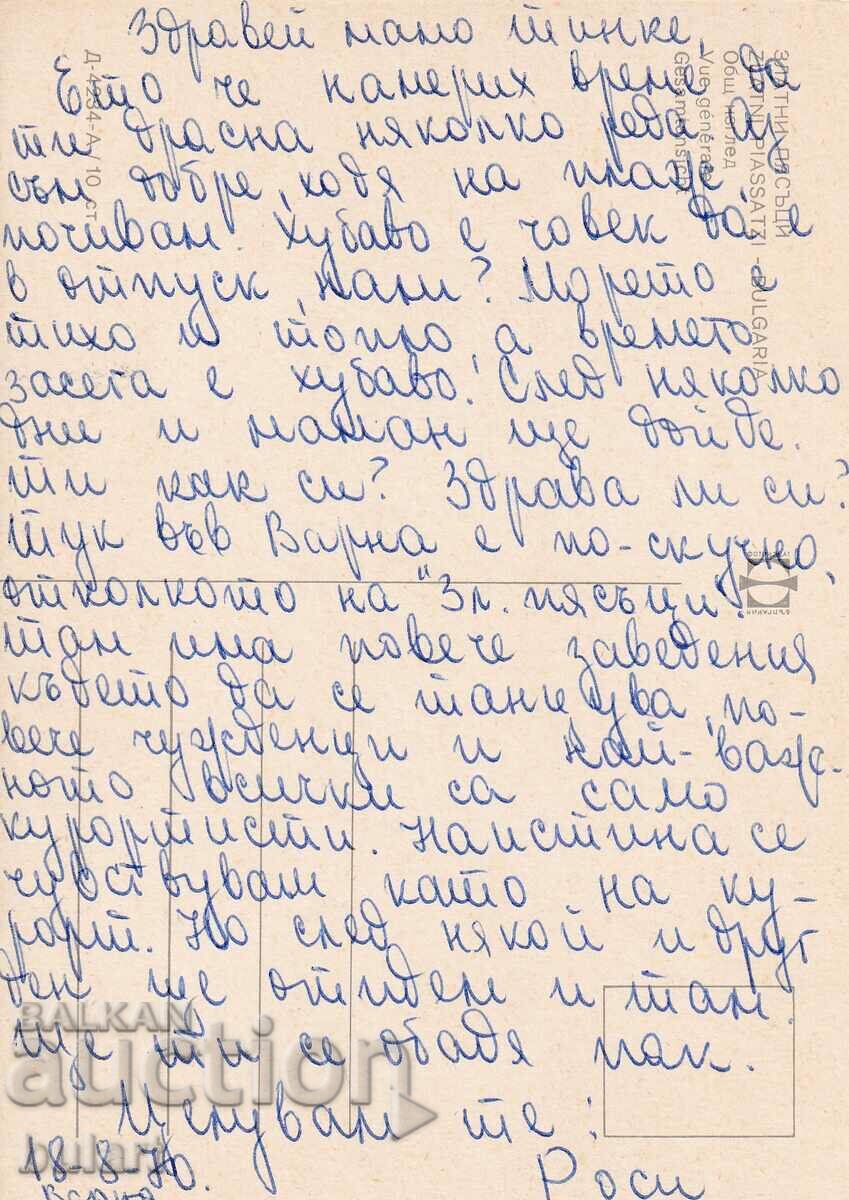 Здравей мамо Тинке,
Ето че намерих време да
ти драсна няколко реда. Аз
съм добре, ходя на плаж,
почивам. Хубаво е човек да е
в отпуск, нали? Морето е
тихо и топло, а времето
засега е хубаво. След няколко
дни и маман ще дойде.
Ти как си? Здрава ли си?
Тук във Варна е по-скучно,
отколкото на "Зл. пясъци".
Там има повече заведения
където да се танцува, по-
вече чужденци и най-важ-
ното всички са само
курортисти. Наистина се
чувствувам като на ку-
рорт. Но след някой и друг
ден ще отидем и там.
Ще ти се обадя пак.
Целувам те:
18-8-70. Роси
Варна
ЗЛАТНИ ПЯСЪЦИ
ZLATNI PIASSATZI - BULGARIA
Общ изглед
Vue générale
Gesamtansicht
Д-4234-А/10 ст
ФОТОИЗДАТ
БЪЛГАРИЯ
BALKAN
auction
bulart